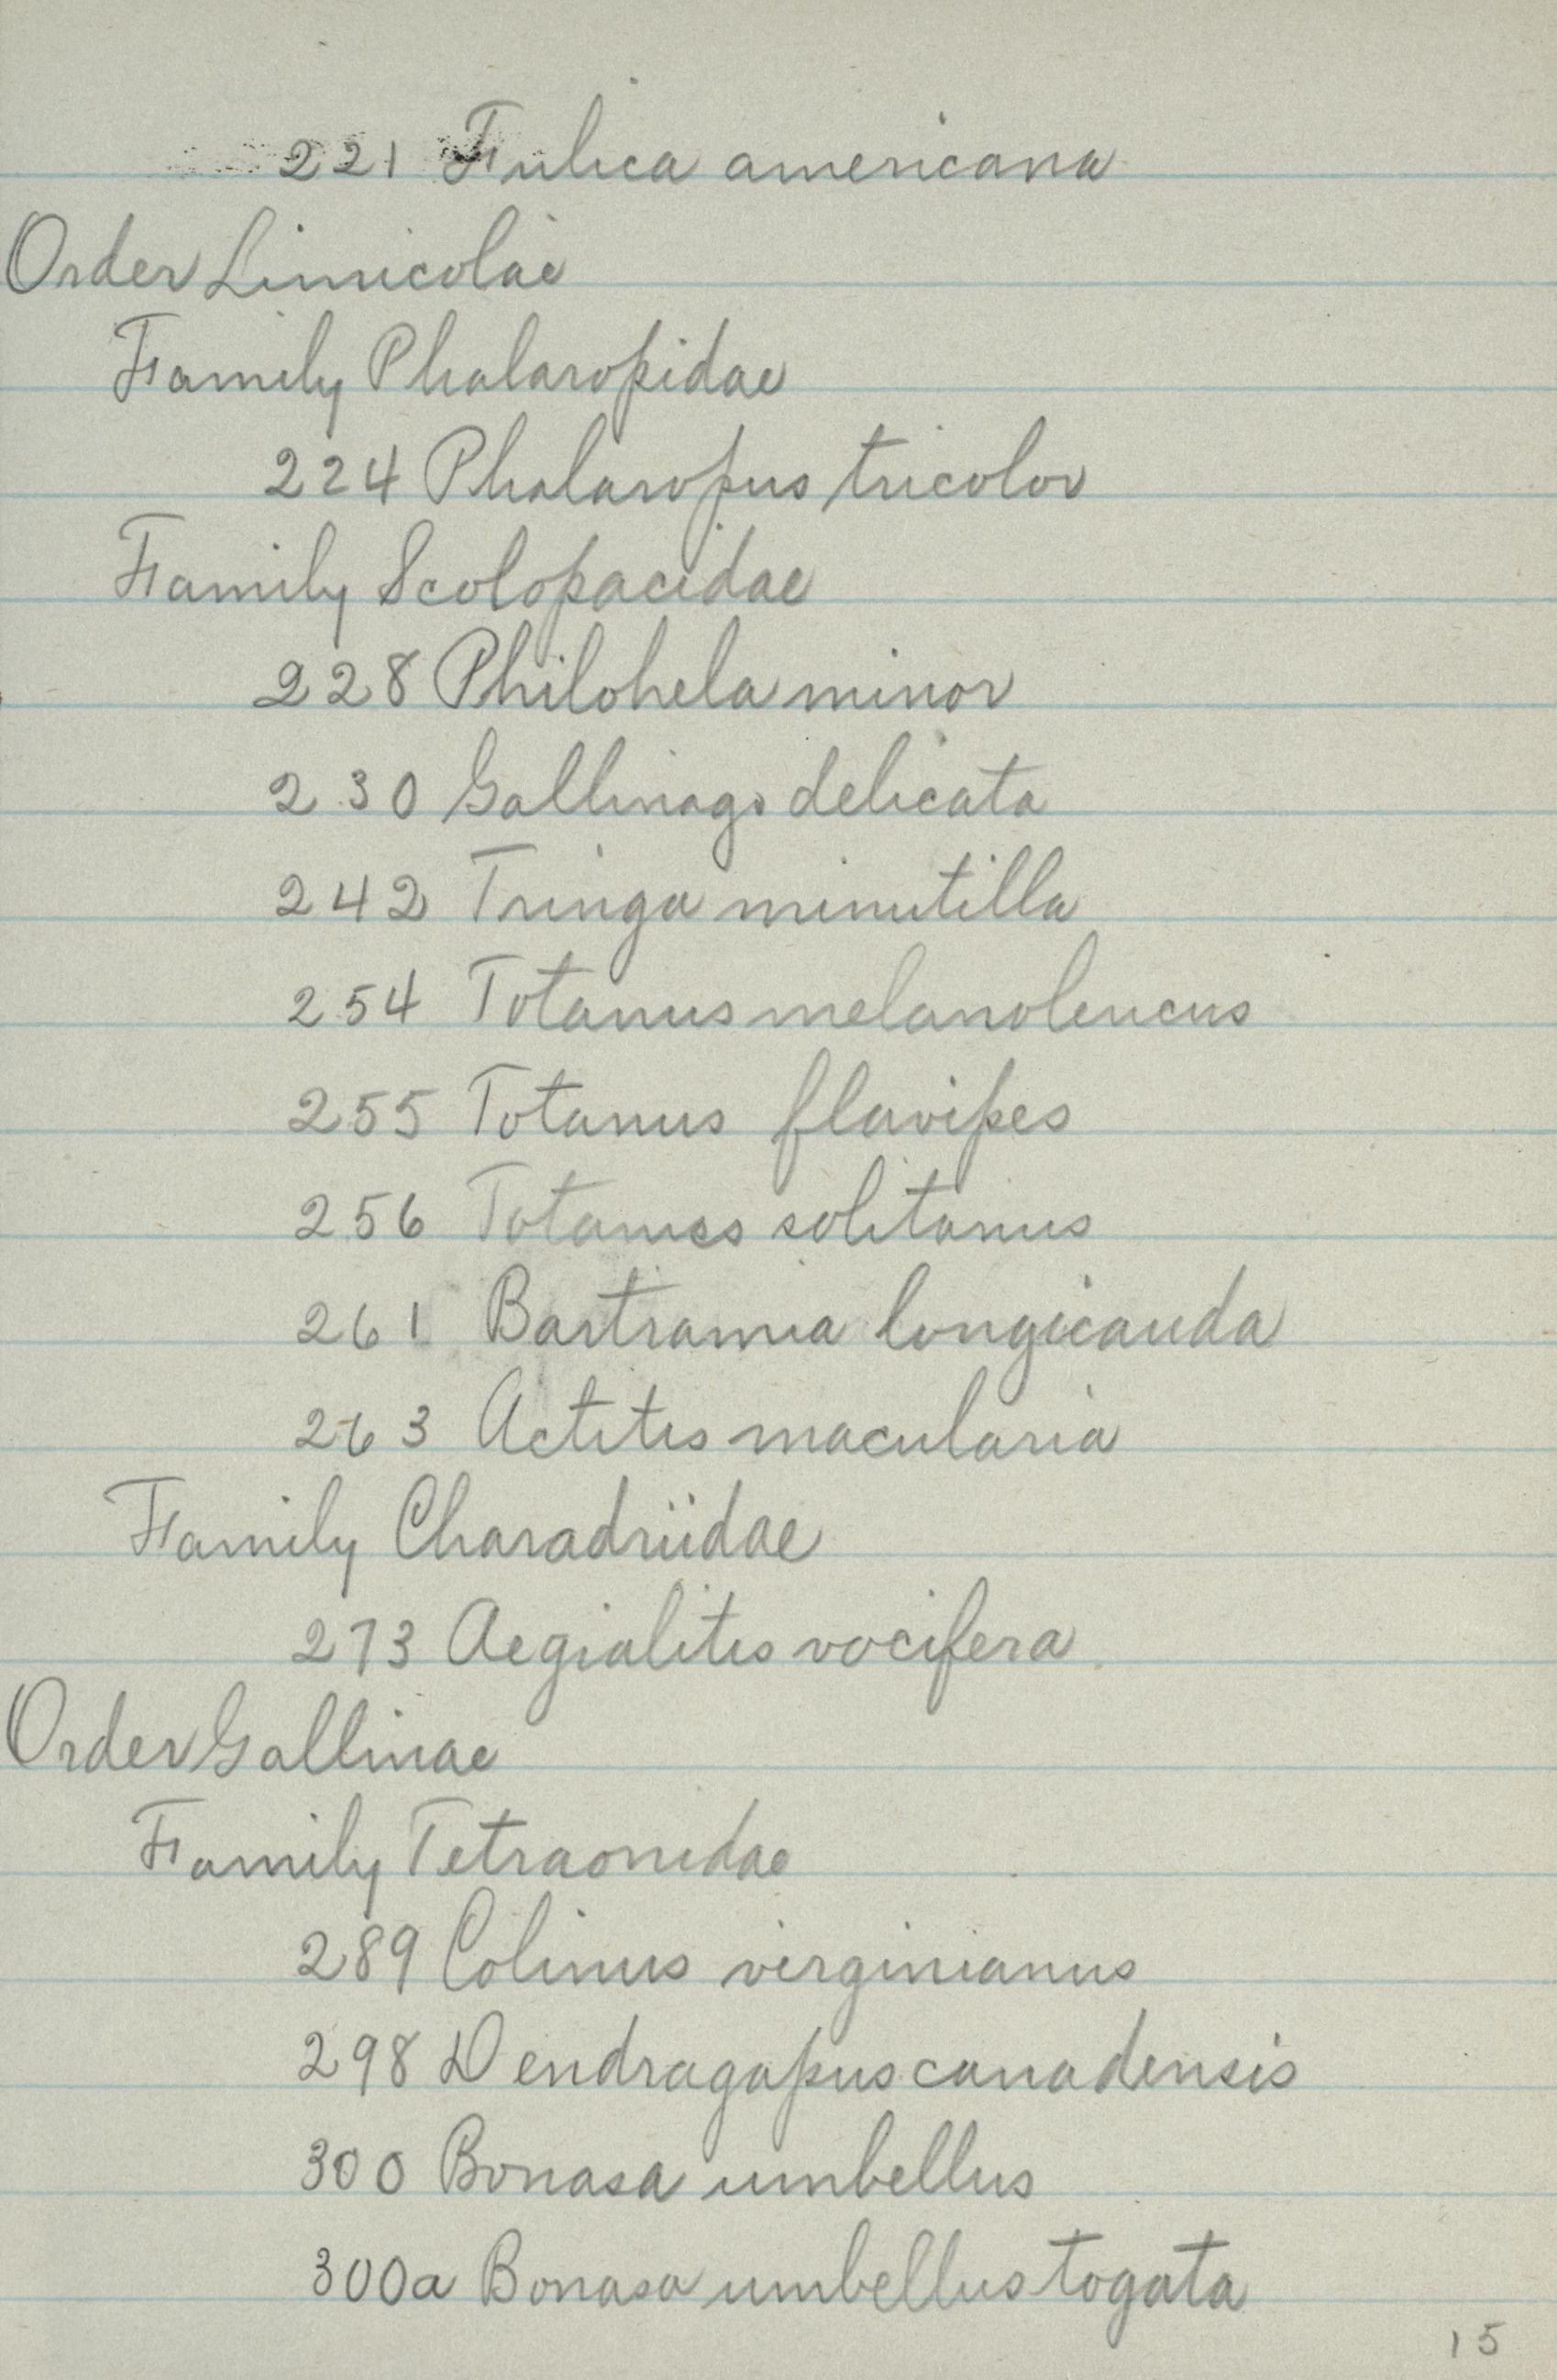 221 Fulica americana
Order Limicolae
Family Phalaropidae
224 Phalaropus tricolor
Family Scolopacidae
228 Philohela minor
230 Gallinago delicata
242 Tringa minutilla
254 Totanus melanoleucus
255 Totanus flavipes
256 Totanus solitarius
261 Bartramia longicauda
263 Actitis macularia
Family Charadriidae
273 Aegialitis vocifera
Order Gallinae
Family Tetraonidae
289 Colinus virginianus
298 Dendragapus canadensis
300 Bonasa umbellus
300a Bonasa umbellus togata
15